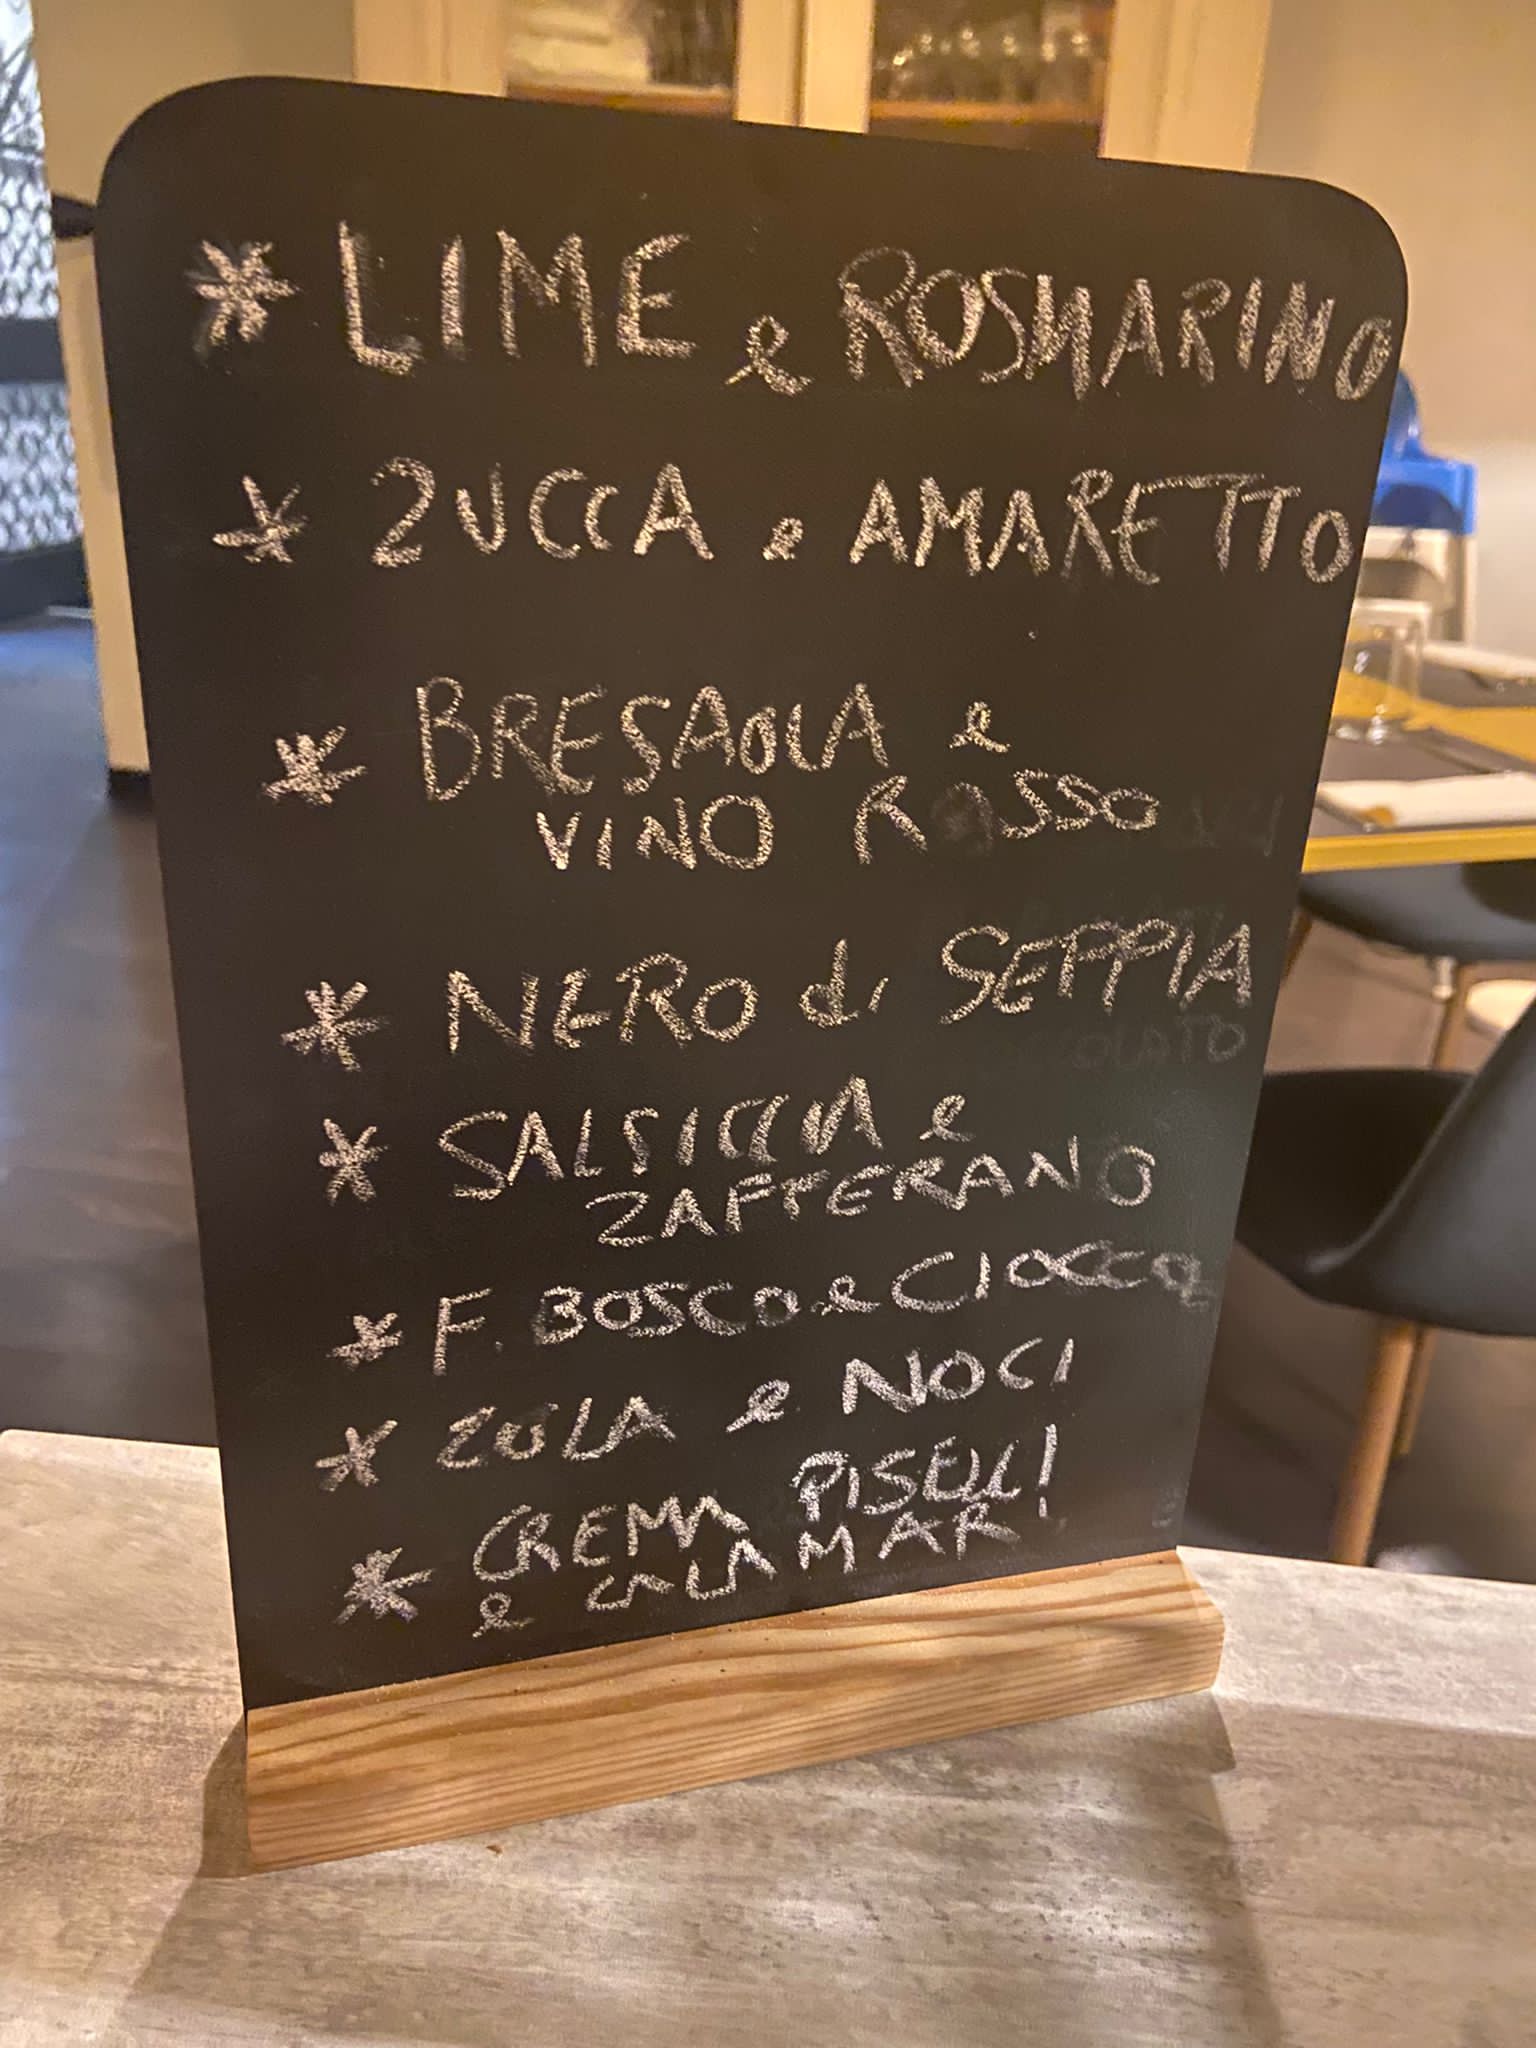 * LIME e ROSMARINO
* ZUCCA e AMARETTO
* BRESAOLA e
VINO ROSSO
* NERO di SEPPIA
* SALSICCIA e
ZAFFERANO
* F. BOSCO e CIOCCO
* ZOLA e NOCI
* CREMA PISELLI
e CALAMARI